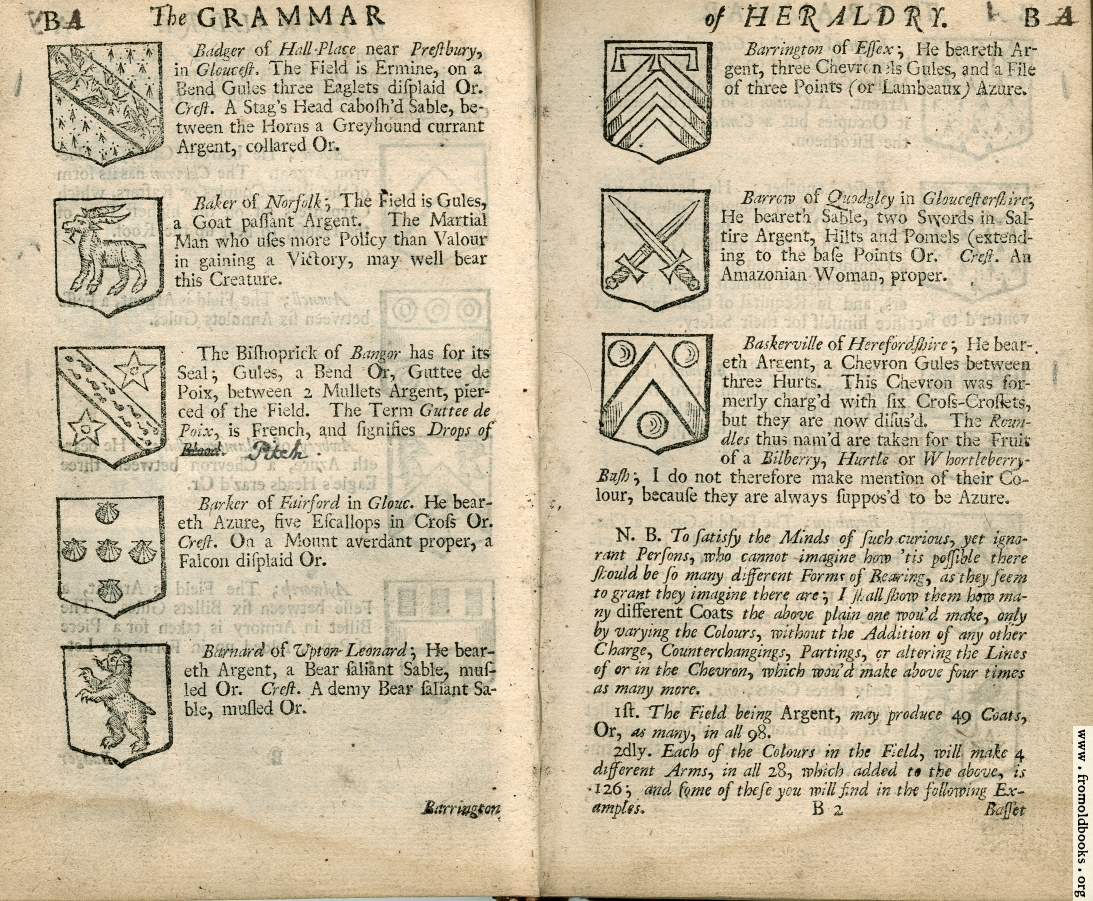 BA The GRAMMAR
Badger of Hall-Place near Preſtbury,
in Glouceſt. The Field is Ermine, on a
Bend Gules three Eaglets diſplaid Or.
Creſt. A Stag's Head caboſh'd Sable, be-
tween the Horns a Greyhound currant
Argent, collared Or.
Baker of Norfolk; The Field is Gules,
a Goat paſſant Argent. The Martial
Man who uſes more Policy than Valour
in gaining a Victory, may well bear
this Creature.
The Biſhoprick of Bangor has for its
Seal; Gules, a Bend Or, Guttee de
Poix, between 2 Mullets Argent, pier-
ced of the Field. The Term Guttee de
Poix, is French, and ſignifies Drops of
Blood. Pitch.
Barker of Fairford in Glouc. He bear-
eth Azure, five Eſcallops in Croſs Or.
Creſt. On a Mount averdant proper, a
Falcon diſplaid Or.
Barnard of Upton-Leonard; He bear-
eth Argent, a Bear ſaliant Sable, muſ-
led Or. Creſt. A demy Bear ſaliant Sa-
ble, muſled Or.
Barrington
of HERALDRY. BA
Barrington of Eſſex; He beareth Ar-
gent, three Chevronels Gules, and a File
of three Points (or Lambeaux) Azure.
Barrow of Quodgley in Glouceſterſhire;
He beareth Sable, two Swords in Sal-
tire Argent, Hilts and Pomels (extend-
ing to the baſe Points Or. Creſt. An
Amazonian Woman, proper.
Baskerville of Herefordſhire; He bear-
eth Argent, a Chevron Gules between
three Hurts. This Chevron was for-
merly charg'd with ſix Croſs-Croſlets,
but they are now diſus'd. The Roun-
dles thus nam'd are taken for the Fruit
of a Bilberry, Hurtle or Whortleberry-
Buſh; I do not therefore make mention of their Co-
lour, becauſe they are always ſuppos'd to be Azure.
N. B. To ſatisfy the Minds of ſuch curious, yet igno-
rant Perſons, who cannot imagine how 'tis poſſible there
ſhould be ſo many different Forms of Bearing, as they ſeem
to grant they imagine there are; I ſhall ſhow them how ma-
ny different Coats the above plain one wou'd make, only
by varying the Colours, without the Addition of any other
Charge, Counterchangings, Partings, or altering the Lines
of or in the Chevron, which wou'd make above four times
as many more.
1ſt. The Field being Argent, may produce 49 Coats,
Or, as many, in all 98.
2dly. Each of the Colours in the Field, will make 4
different Arms, in all 28, which added to the above, is
126; and ſome of theſe you will find in the following Ex-
amples. B 2 Baſſet
www.fromoldbooks.org